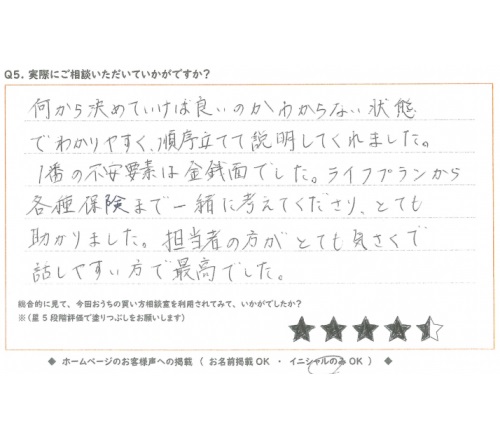 Q5. 実際にご相談いただいていかがですか？
何から決めていけば良いのかわからない状態
でわかりやすく、順序立てて説明してくれました。
1番の不安要素は金銭面でした。ライフプランから
各種保険まで一緒に考えてくださり、とても
助かりました。担当者の方がとても気さくで
話しやすい方で最高でした。
総合的に見て、今回おうちの買い方相談室を利用されてみて、いかがでしたか？
※（星５段階評価で塗りつぶしをお願いします）
◆ ホームページのお客様声への掲載（ お名前掲載OK ・ イニシャルのみOK ） ◆